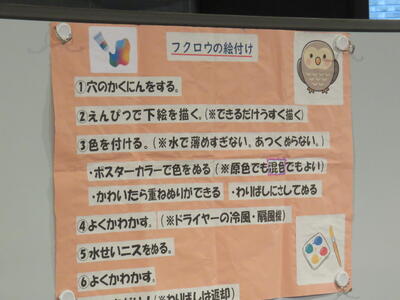 フクロウの絵付け
①穴のかくにんをする。
②えんぴつで下絵を描く。(※できるだけうすく描く)
③色を付ける。(※水で薄めすぎない。あつくぬらない。)
・ポスターカラーで色をぬる(※原色でも混色でもよい)
・かわいたら重ねぬりができる ・わりばしにさしてぬる
④よくかわかす。(※ドライヤーの冷風・扇風機)
⑤水せいニスをぬる。
⑥よくかわかす。
(※わりばしは返却)